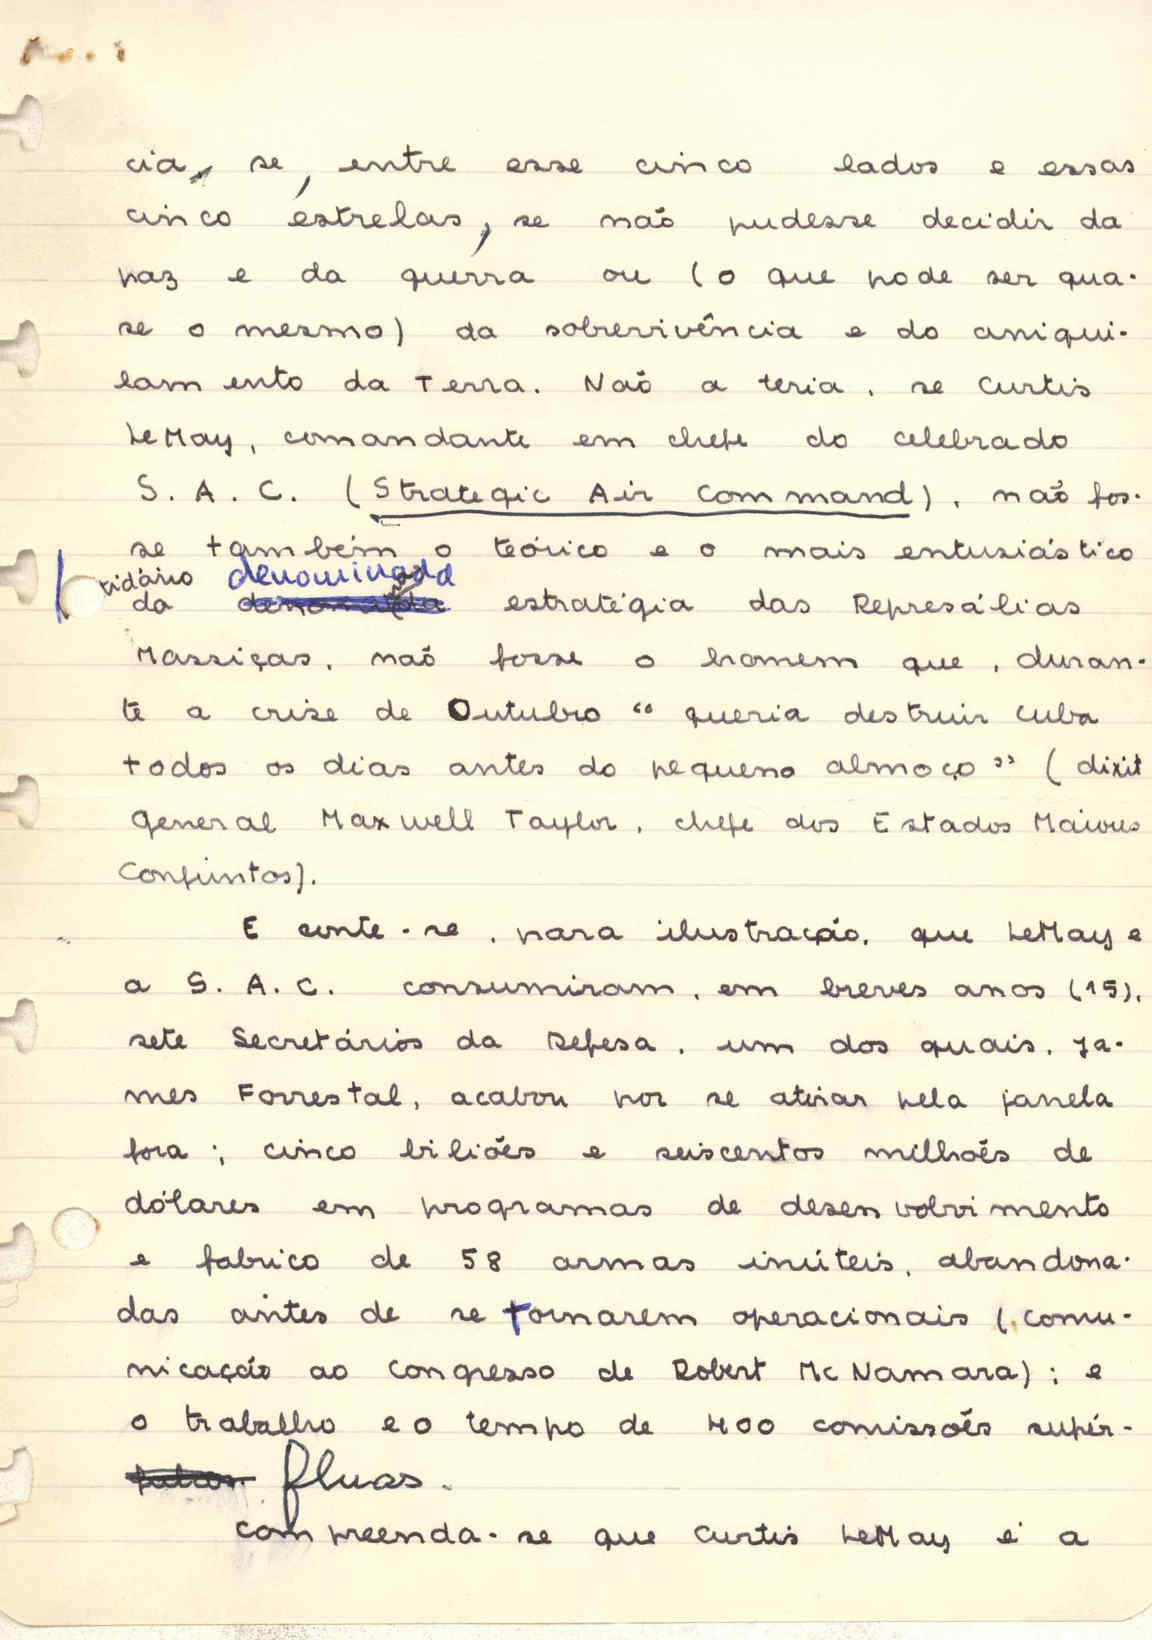 cia, se, entre esse cinco lados e essas
cinco estrelas, se não pudesse decidir da
paz e da guerra ou (o que pode ser qua-
se o mesmo) da sobrevivência e do aniqui-
lamento da Terra. Não a teria, se Curtis
LeMay, comandante em chefe do celebrado
S. A. C. (Strategic Air Command), não fos-
se também o teórico e o mais entusiástico
tidário denominada
da estratégia das Represálias
Massiças, não fosse o homem que, duran-
te a crise de Outubro "queria destruir Cuba
todos os dias antes do pequeno almoço" (dixit
General Maxwell Taylor, chefe dos Estados Maiores
Conjuntos).
E conte-se, para ilustração, que LeMay e
a S. A. C. consumiram, em breves anos (15),
sete Secretários da Defesa, um dos quais, Ja-
mes Forrestal, acabou por se atirar pela janela
fora; cinco biliões e seiscentos milhões de
dólares em programas de desenvolvimento
e fabrico de 58 armas inúteis, abandona-
das antes de se tornarem operacionais (comu-
nicação ao Congresso de Robert McNamara); e
o trabalho e o tempo de 400 comissões supér-
fluas.
Compreenda-se que Curtis LeMay é a